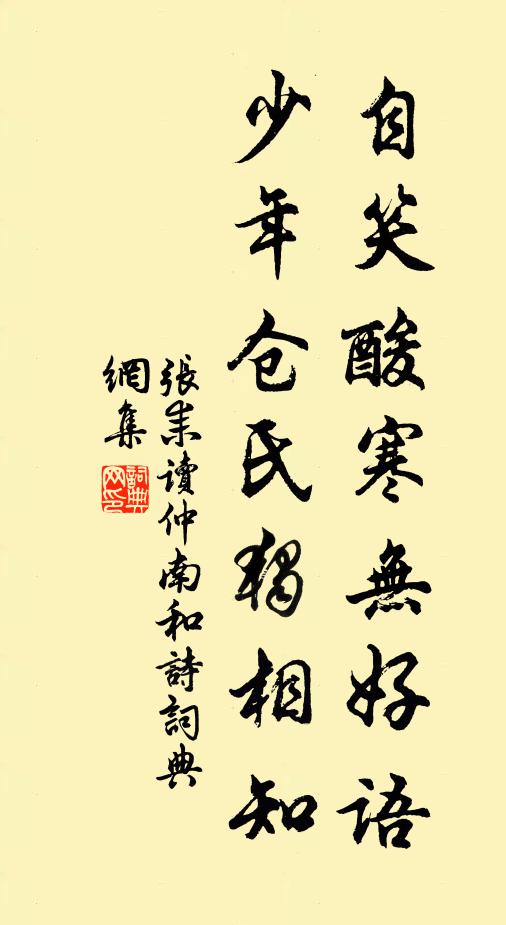 自笑酸寒無好語
少年仓氏獨相知
張耒讀仲南和詩詞典
網集
詞典
网印